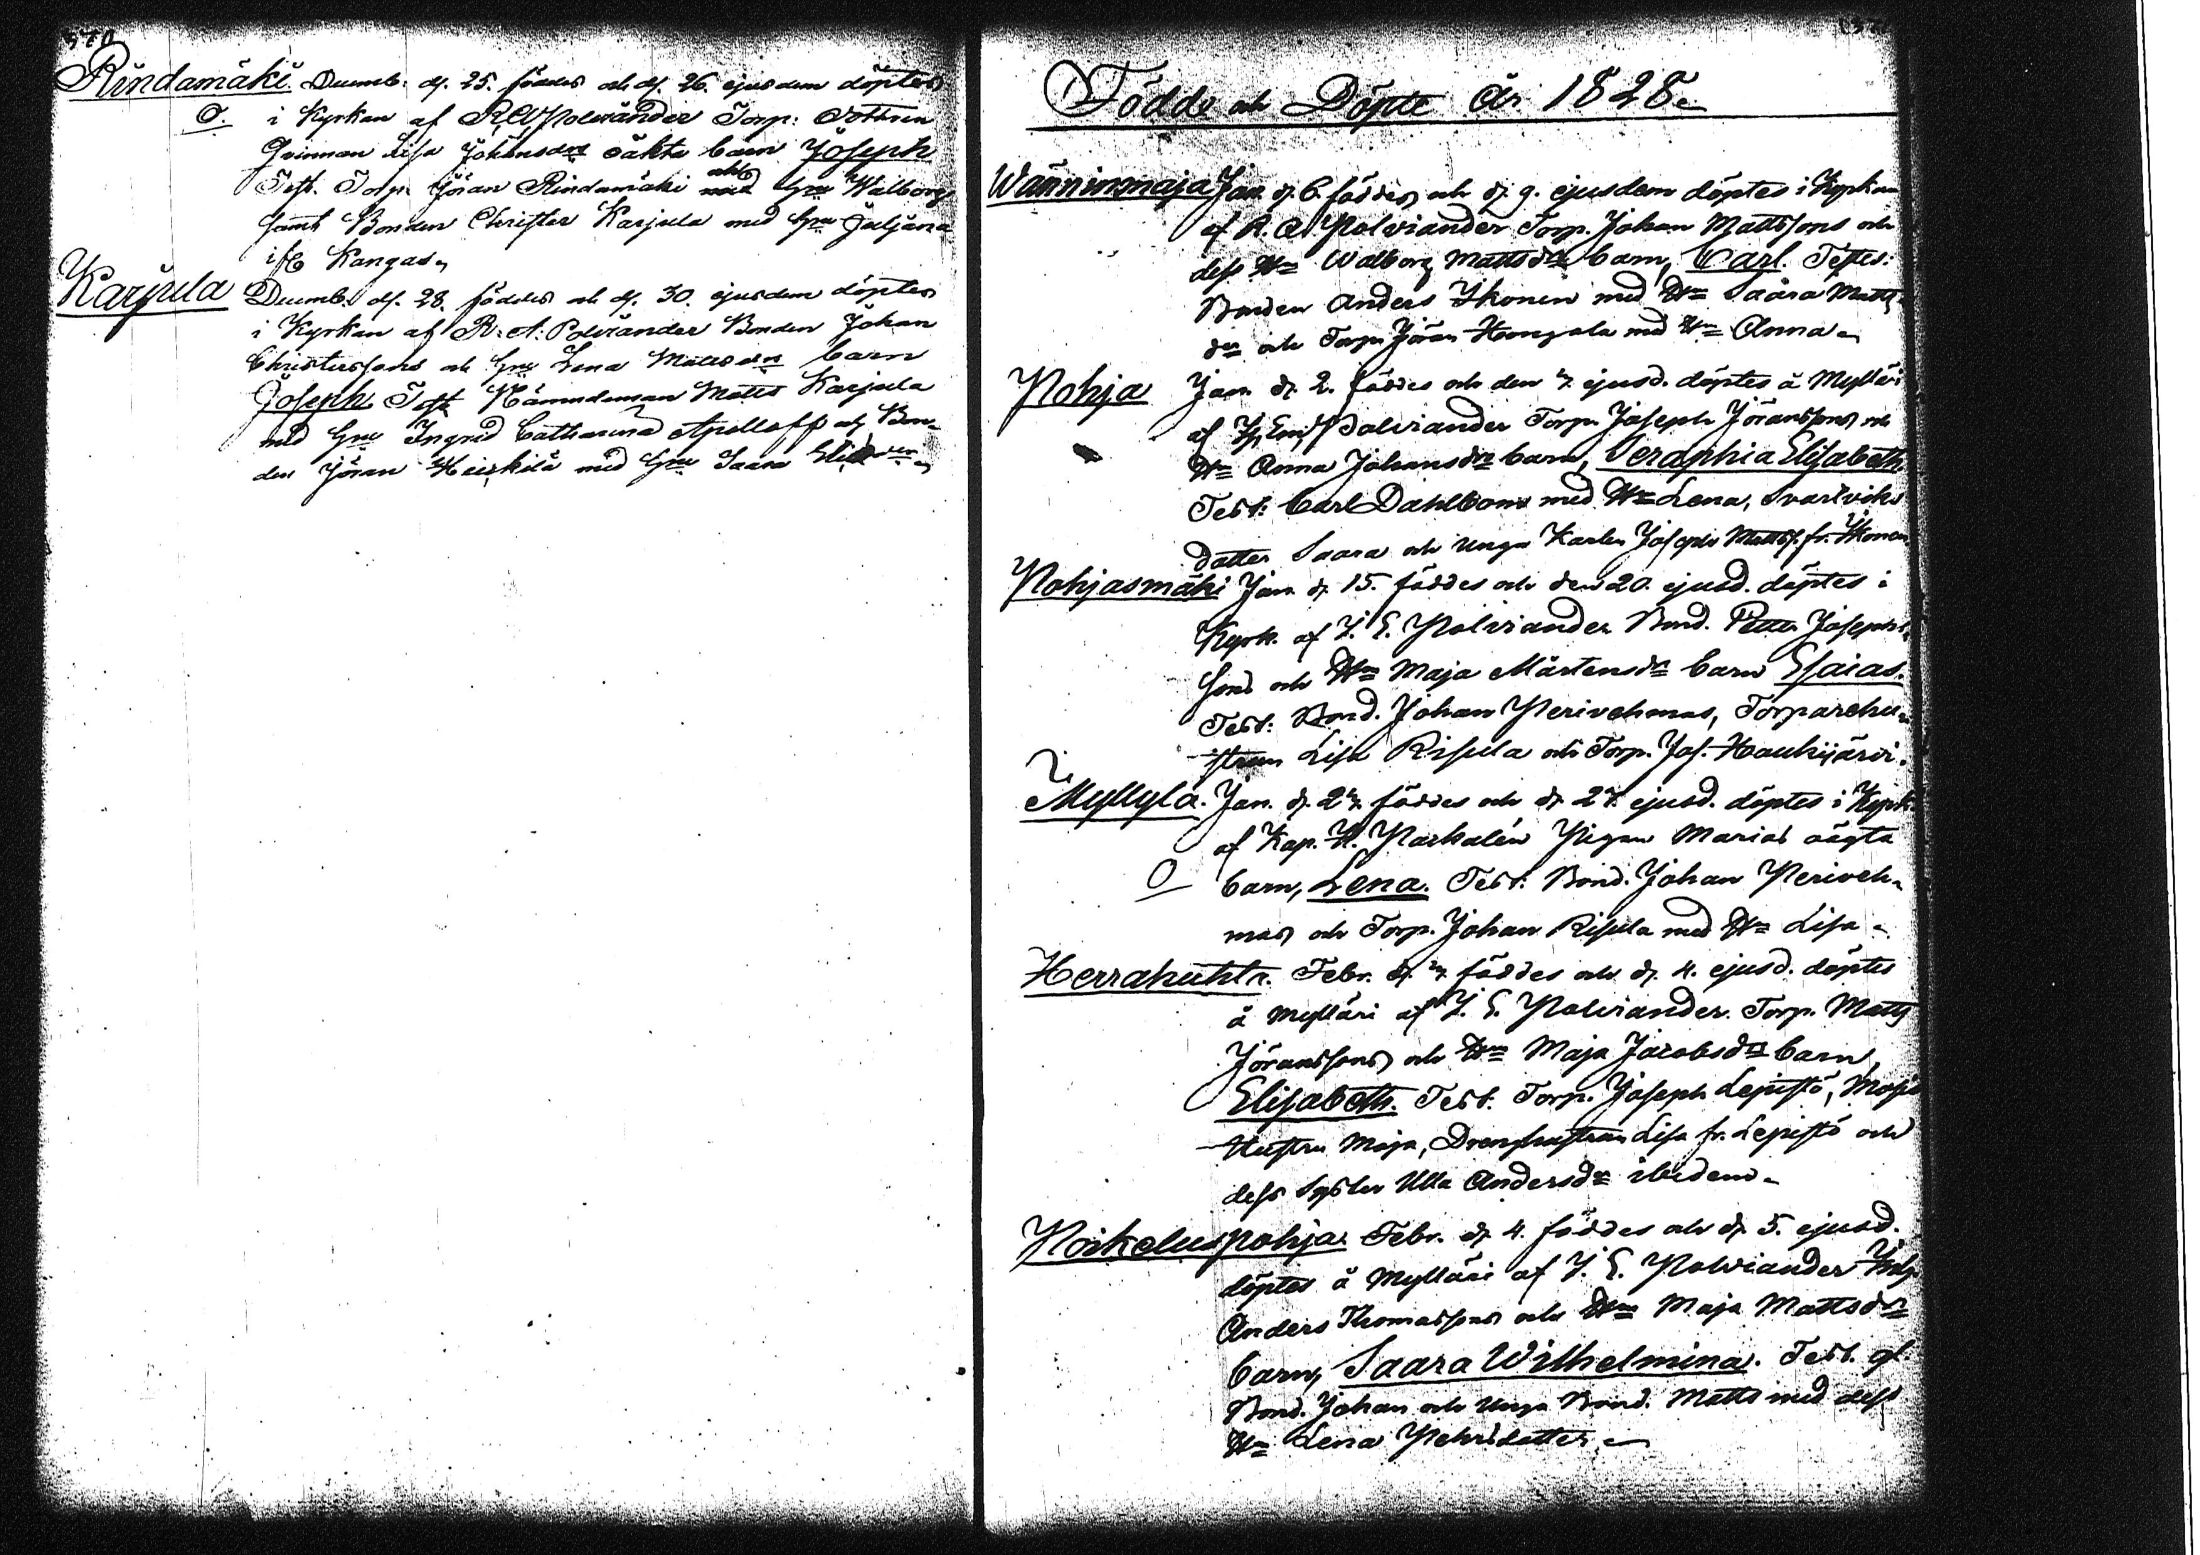 370
Rindamäki. Decemb. d. 25. föddes och d. 26. ejusdem döptes
O. i Kyrkan af R. A. Polviander Torp: dottren
Qvinnan Lisa Johansdrs oäkta barn Joseph
Test. Torp. Jöran Rindamäki och Hru Walborg
samt Bonden Christer Karjula med Hru Juljana
ifr. Kangas
Karjula Decemb. d. 28. föddes och d. 30. ejusdem döptes
i Kyrkan af R. A. Polviander Bonden Johan
Christerssons och Hru Lena Mattsdrs barn
Joseph. Test. Nämndeman Matts Karjula
med Hru Ingrid Catharina Apolloff och Bon-
den Jöran Heickilä med Hru Saara
Födde och Döpte År 1828
Wänninmaja Jan. d. 6. föddes och d. 9. ejusdem döptes i Kyrkan
af R. A. Polviander Torp. Johan Mattssons och
dess Hu Walborg Mattsdrs barn, Carl. Testes:
Bonden Anders Ikonen med Hu Saara Matts-
dr och Torp. Jöran Hongola med Hu Anna
Pohja Jan. d. 2. föddes och den 7. ejusd. döptes å Mylläri
af J. Em. Polviander Torp. Joseph Jöranssons och
Hu Anna Johansdrs barn, Seraphia Elisabeth
Test: Carl Dahlbom med Hu Lena, Svartviks
dotter Saara och unga Karlen Joseph Mattss. fr. Ikonen
Pohjasmäki Jan. d. 15. föddes och den 20. ejusd. döptes i
Kyrk. af J. E. Polviander Bond. Petter Josephs-
sons och Hus Maja Mårtensdrs barn Esaias.
Test: Bond. Johan Perivehmas, Torparehu-
strun Lisa Risula och Torp. Jos. Haukijärvi.
Myllylä. Jan. d. 27. föddes och d. 27. ejusd. döptes i Kyrk.
af Kap. H. Packalén Pigan Marias oägta
O barn, Lena. Test: Bond. Johan Periveh-
mas och Torp. Johan Risula med Hu Lisa
Herrakuhta. Febr. d. föddes och d. 4. ejusd. döptes
å Mylläri af J. E. Polviander. Torp. Matts
Jöranssons och Hus Maja Jacobsdrs barn,
Elisabeth. Test. Torp. Joseph Lepistö,
Hustru Maja, Drenghustrun Lisa fr. Lepistö och
dess Syster Ulla Andersdr ibidem
Poikeluspohja. Febr. d. 4. föddes och d. 5. ejusd.
döptes å Mylläri af J. E. Polviander
Anders Thomassons och Hus Maja Mattsdrs
barn, Saara Wilhelmina. Test. gl.
Bond. Johan och unga Bond. Matts med dess
Hu Lena Pehrsdotter